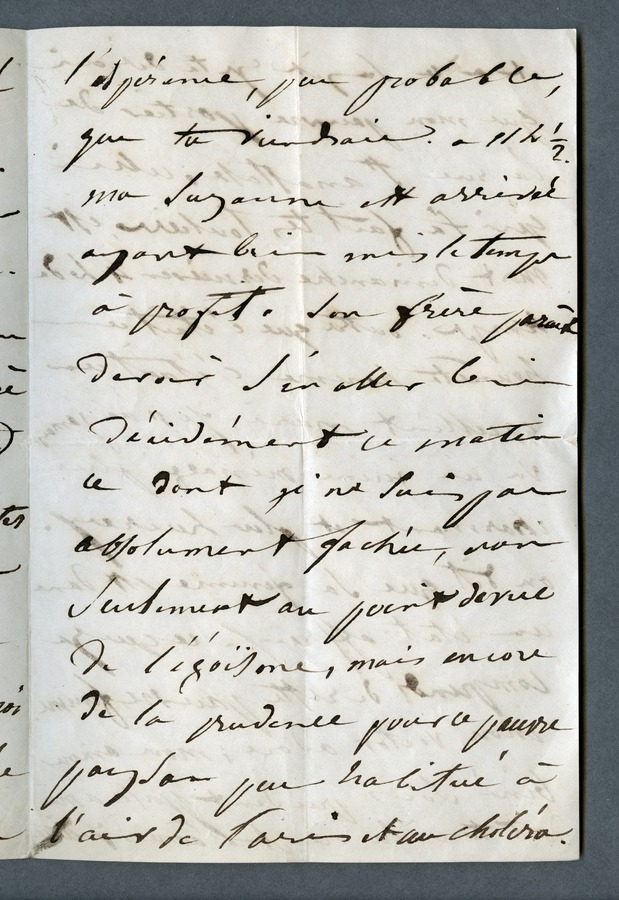 l'espérance, peu probable,
que tu viendrais. a 11 h 1/2.
ma Suzanne est arrivée
ayant bien mis le temps
à profit. Son frère paraît
devoir s'en aller bien
décidément ce matin
ce dont je ne suis pas
absolument fachée, non
seulement au point de vue
de l'égoïsme, mais encore
de la prudence pour ce pauvre
paysan peu habitué à
l'air de Paris et au choléra.